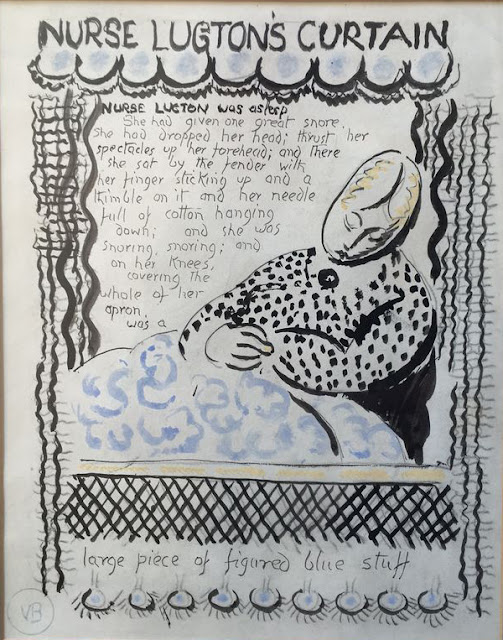 NURSE LUGTON'S CURTAIN
NURSE LUGTON was asleep
She had given one great snore.
She had dropped her head; thrust her
spectacles up her forehead; and there
she sat by the fender with
her finger sticking up and a
thimble on it and her needle
full of cotton hanging
down; and she was
snoring, snoring; and
on her knees,
covering the
whole of her
apron,
was a
large piece of figured blue stuff
VB